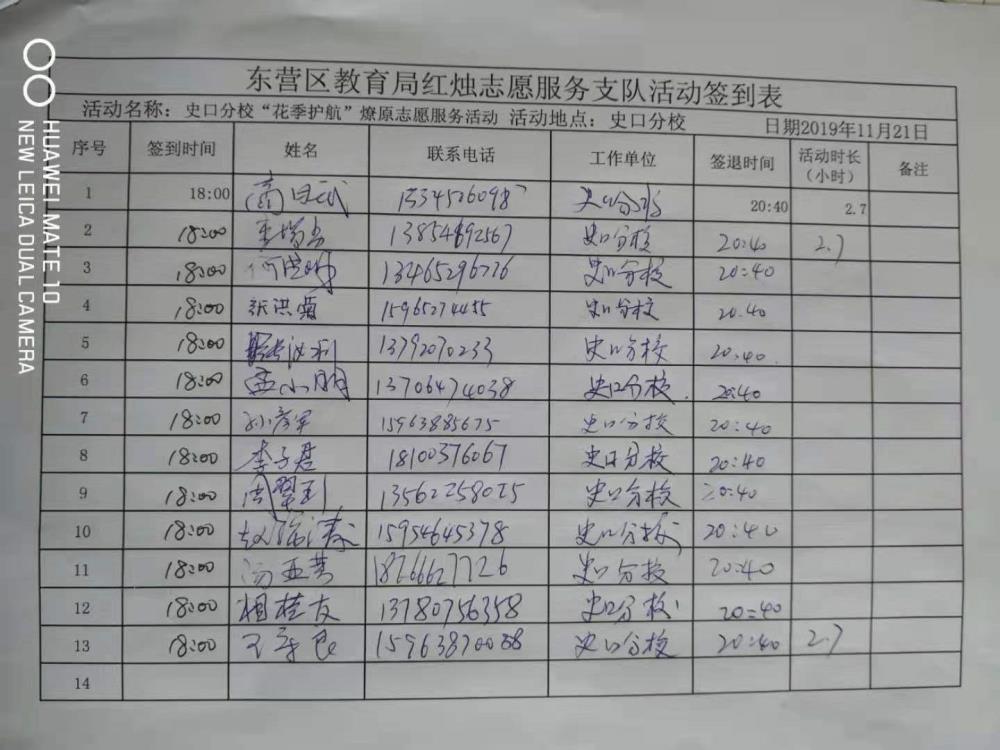 HUAWEI MATE 10
NEW LEICA DUAL CAMERA
东营区教育局红烛志愿服务支队活动签到表
活动名称：史口分校“花季护航”燎原志愿服务活动 活动地点：史口分校 日期2019年11月21日
序号 签到时间 姓名 联系电话 工作单位 签退时间 活动时长（小时） 备注
1 18:00 史口分校 20:40 2.7
2 18:00 13854692567 史口分校 20:40 2.7
3 18:00 13465296726 史口分校 20:40
4 18:00 张洪菊 15965274455 史口分校 20:40
5 18:00 13792070233 史口分校 20:40
6 18:00 孟小朋 13706474038 史口分校 20:40
7 18:00 孙彦军 15963885675 史口分校 20:40
8 18:00 李子君 18100376067 史口分校 20:40
9 18:00 13562258025 史口分校 20:40
10 18:00 15954645378 史口分校 20:40
11 18:00 18266627726 史口分校 20:40
12 18:00 相桂友 13780756358 史口分校 20:40
13 18:00 史口分校 20:40 2.7
14